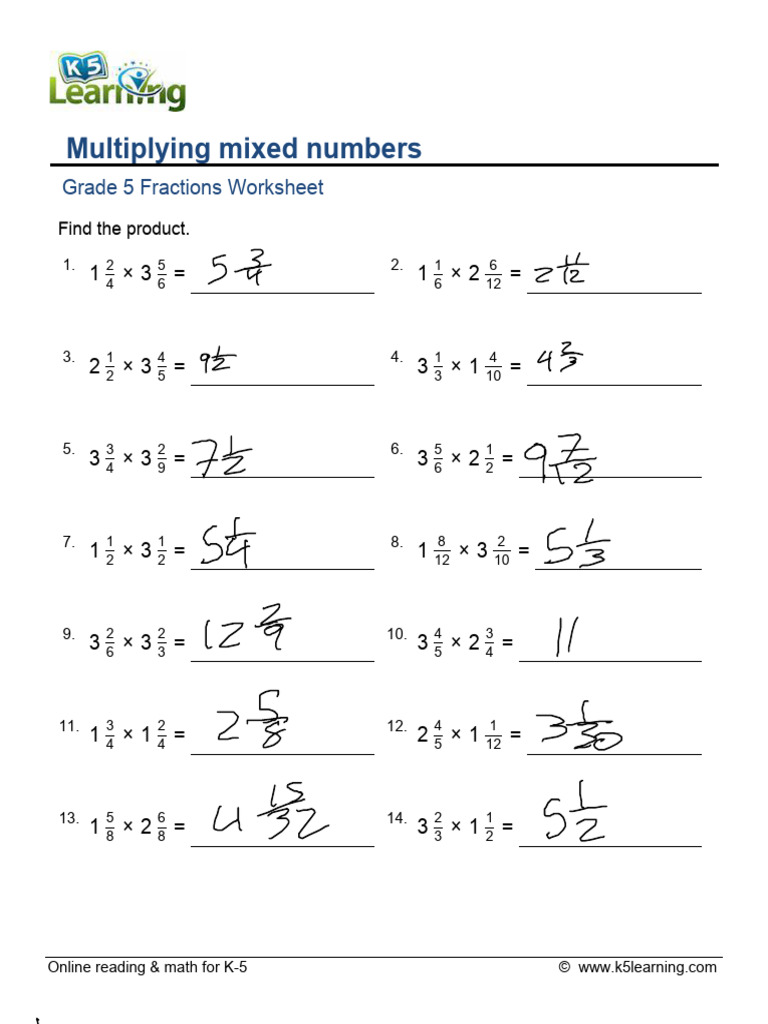 K5
Learning
Multiplying mixed numbers
Grade 5 Fractions Worksheet
Find the product.
1. 1 2/4 × 3 5/6 = 5 3/4
2. 1 1/6 × 2 6/12 = 2 11/12
3. 2 1/2 × 3 4/5 = 9 1/2
4. 3 1/3 × 1 4/10 = 4 2/3
5. 3 3/4 × 3 2/9 = 7 1/2
6. 3 5/6 × 2 1/2 = 9 7/12
7. 1 1/2 × 3 1/2 = 5 1/4
8. 1 8/12 × 3 2/10 = 5 1/3
9. 3 2/6 × 3 2/3 = 12 2/9
10. 3 4/5 × 2 3/4 = 11
11. 1 3/4 × 1 2/4 = 2 5/8
12. 2 4/5 × 1 1/12 = 3 1/30
13. 1 5/8 × 2 6/8 = 4 15/32
14. 3 2/3 × 1 1/2 = 5 1/2
Online reading & math for K-5 © www.k5learning.com